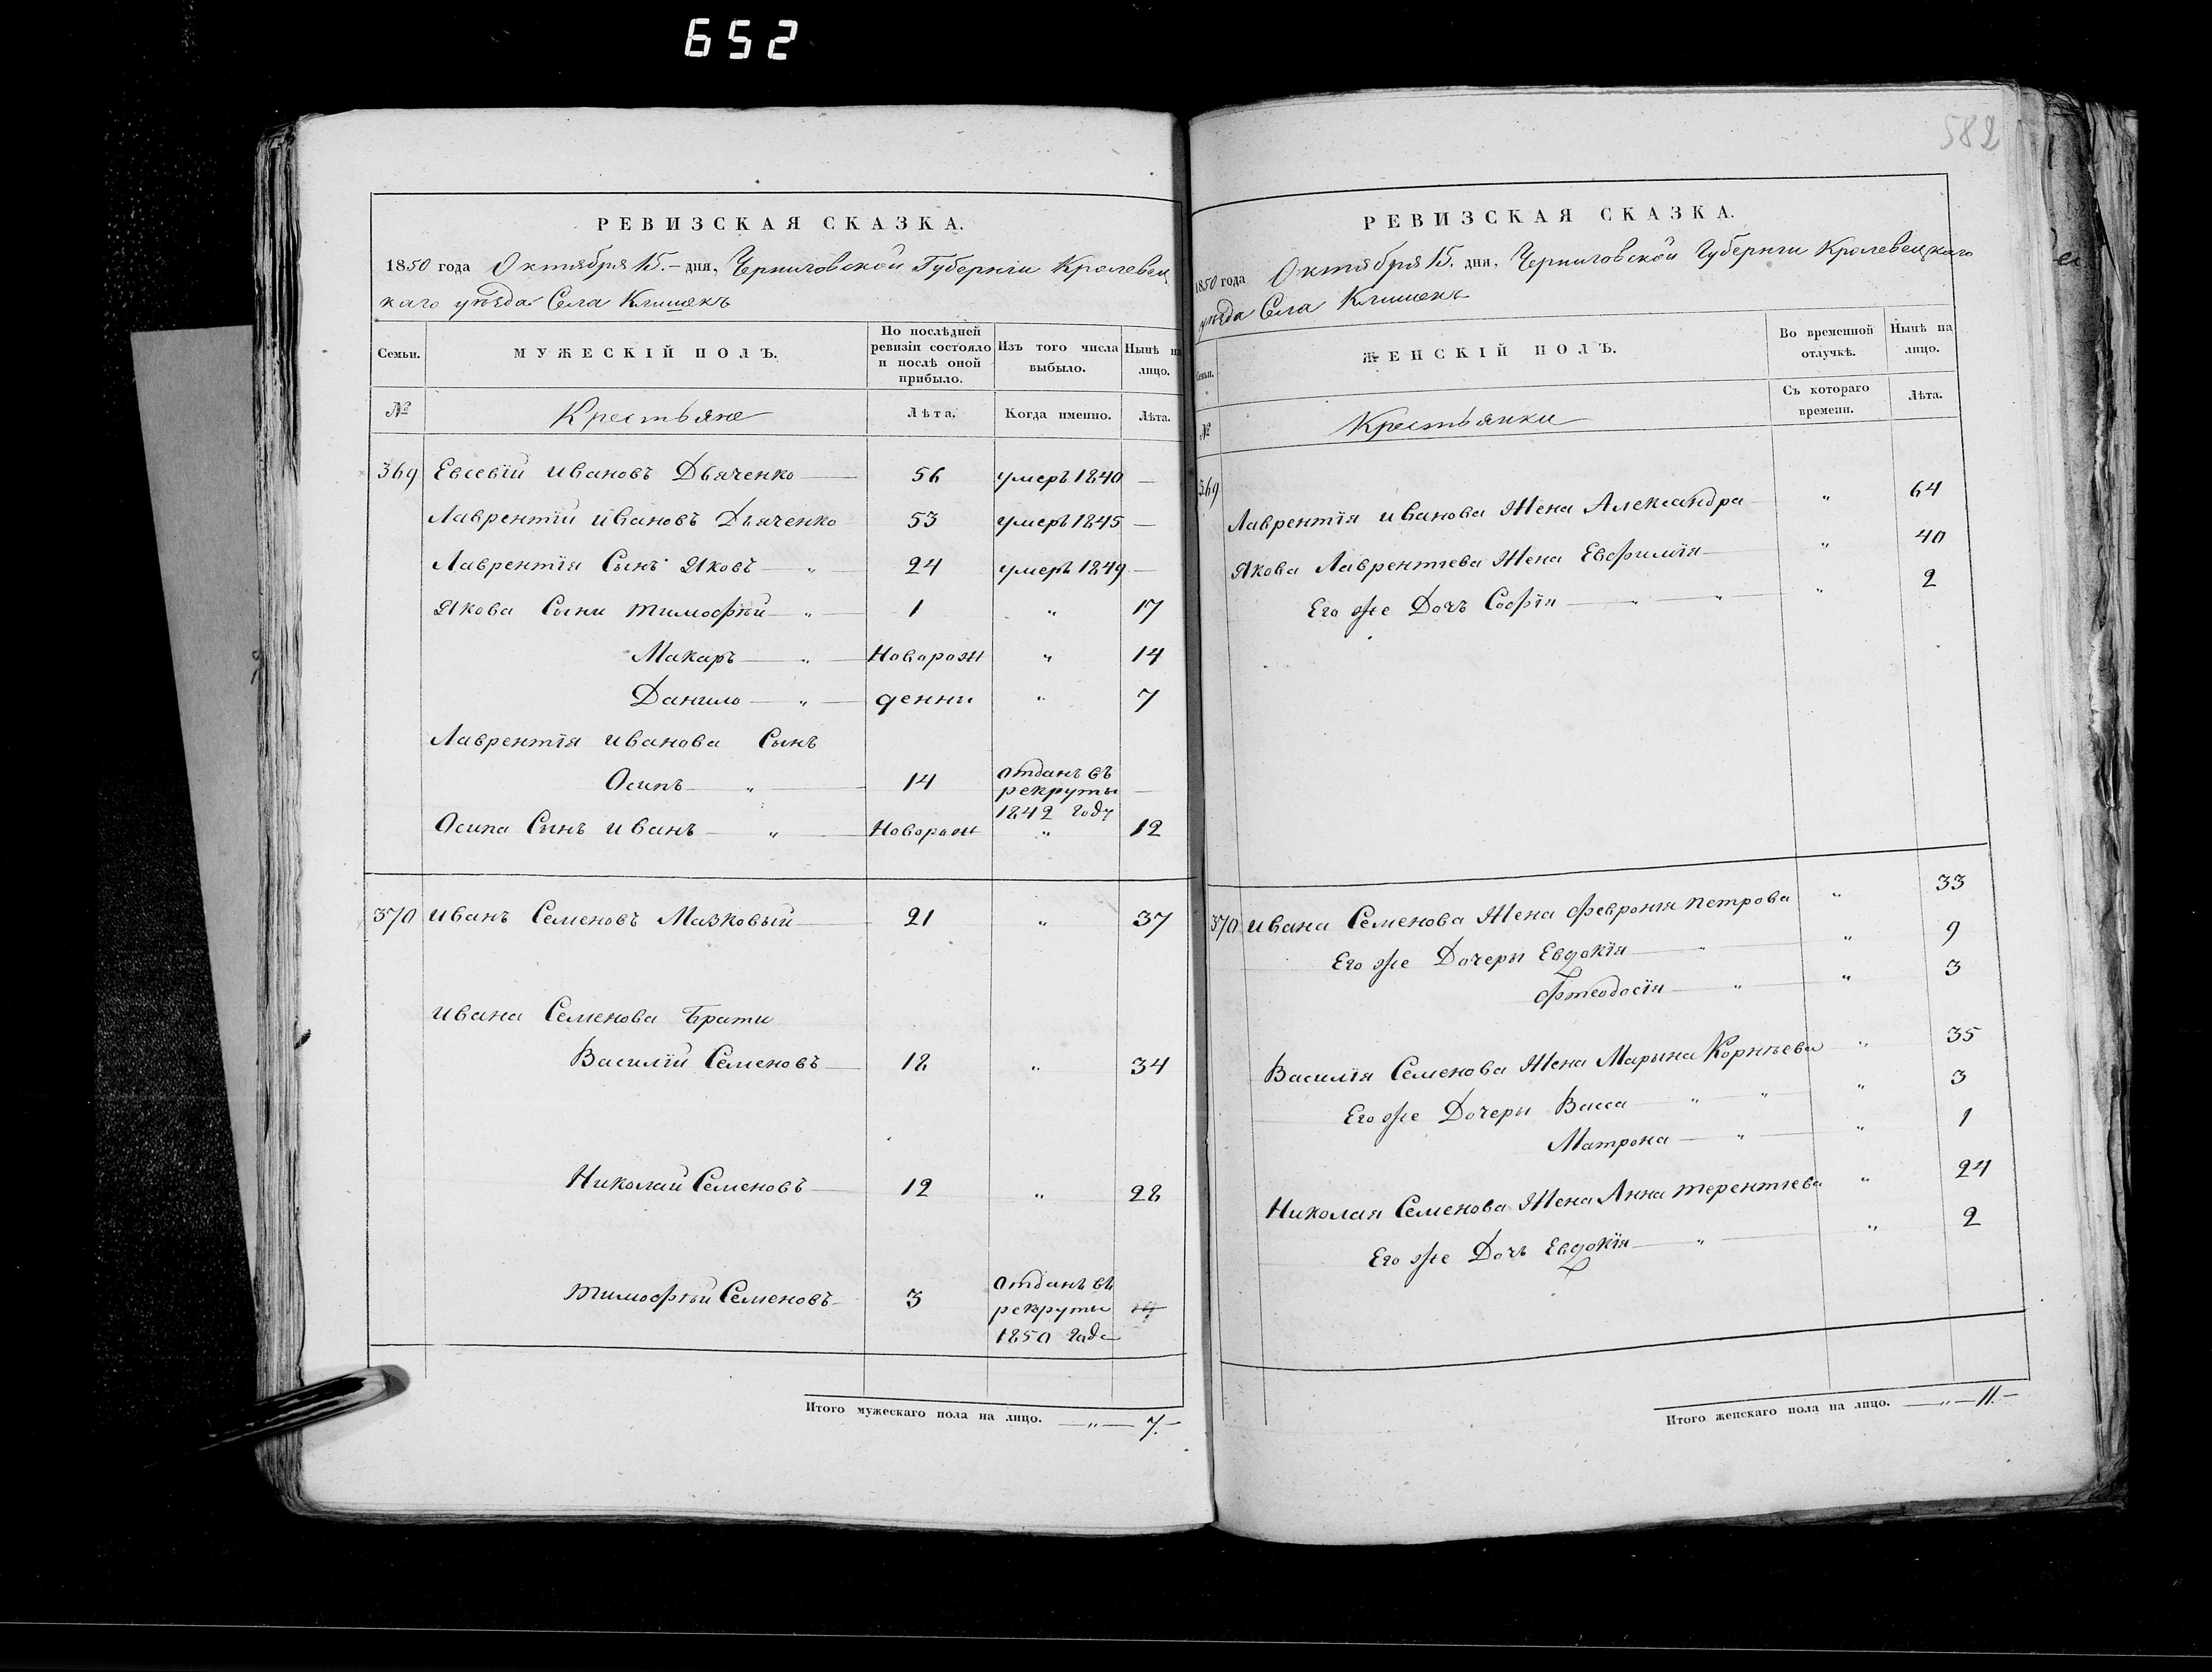 652
582
РЕВИЗСКАЯ СКАЗКА.
1850 года Октября 15.– дня, Черниговской Губерніи Кролевец
каго уѣзда Села Клишекъ
Семьи.
МУЖЕСКІЙ ПОЛЪ.
По послѣдней ревизіи состояло и послѣ оной прибыло.
Изъ того числа выбыло.
Нынѣ на лицо.
№ Крестьяне Лѣта. Когда именно. Лѣта.
369 Евсевій Ивановъ Дьяченко 56 умеръ 1840 —
Лаврентій Ивановъ Дьяченко 53 умеръ 1845 —
Лаврентія Сынъ Яковъ — „ 24 умеръ 1849 —
Якова Сыни Тимофѣй — „ 1 „ 17
Макаръ — „ Неворож „ 14
Данило — „ денни „ 7
Лаврентія Иванова Сынъ
Осипъ — „ 14 отданъ въ рекруты 1842 году —
Осипа Сынъ Иванъ — „ Неворож „ 12
370 Иванъ Семеновъ Мазковый 21 „ 37
Ивана Семенова Брати
Василій Семеновъ 18 „ 34
Николай Семеновъ 12 „ 28
Тимофѣй Семеновъ 3 отданъ въ рекруты 1850 года
Итого мужескаго пола на лицо. — „ — 7.–
РЕВИЗСКАЯ СКАЗКА.
1850 года Октября 15. дня, Черниговской Губерніи Кролевецкаго
уѣзда Села Клишекъ
Семьи.
ЖЕНСКІЙ ПОЛЪ.
Во временной отлучкѣ.
Нынѣ на лицо.
№ Крестьянки Съ котораго времени. Лѣта.
369 Лаврентія Иванова Жена Александра „ 64
Якова Лаврентіева Жена Евфимія „ 40
Его же Дочъ Софія — „ — „ „ 2
370 Ивана Семенова Жена Февронія Петрова „ 33
Его же Дочеры Евдокія — „ „ 9
Фтеодосія — „ „ 3
Василія Семенова Жена Марына Корнѣева „ 35
Его же Дочеры Васса — „ „ „ 3
Матрона — „ „ 1
Николая Семенова Жена Анна Терентіева „ 24
Его же Дочъ Евдокія — „ „ 2
Итого женскаго пола на лицо. — „ — 11.–